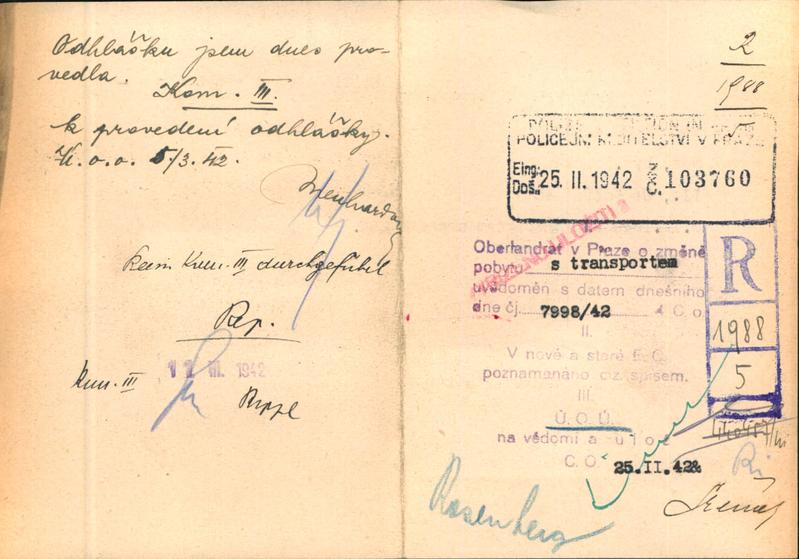 Odhlášku jsem dnes pro-
vedla.
Kom. III.
k provedení odhlášky.
K.o.o. 5/3.42.
beim Kom. III durchgeführt
Rp.
12. III. 1942
Kom. III
2
1988
5
POLICEJNÍ ŘEDITELSTVÍ V PRAZE
Eing.
Doš. 25. II. 1942 Č. 103760
Oberlandrát v Praze o změně
pobytu s transportem
uvědoměn s datem dnešního
dne čj. 7998/42 C.o.
II.
V nové a staré E.C.
poznamenáno ciz. spisem.
III.
Ú.O.Ú.
na vědomí a
C.O. 25.II.42
R
1988
5
Rosenberg